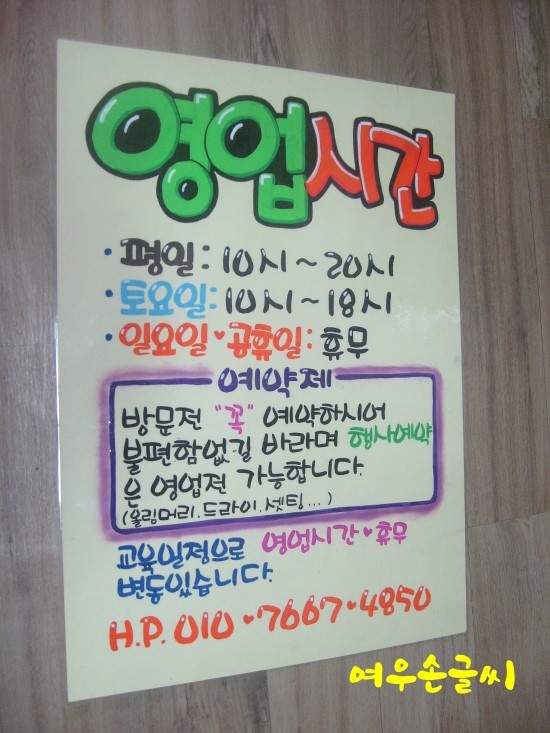 영업시간
• 평일: 10시 ~ 20시
• 토요일: 10시 ~ 18시
• 일요일 ♥ 공휴일: 휴무
예약제
방문전 "꼭" 예약하시어
불편함없길 바라며 행사예약
은 영업전 가능합니다.
(올림머리.드라이.셋팅...)
교육일정으로 영업시간 ♥ 휴무
변동있습니다.
H.P. 010 ♥ 7667 ♥ 4850
여우손글씨